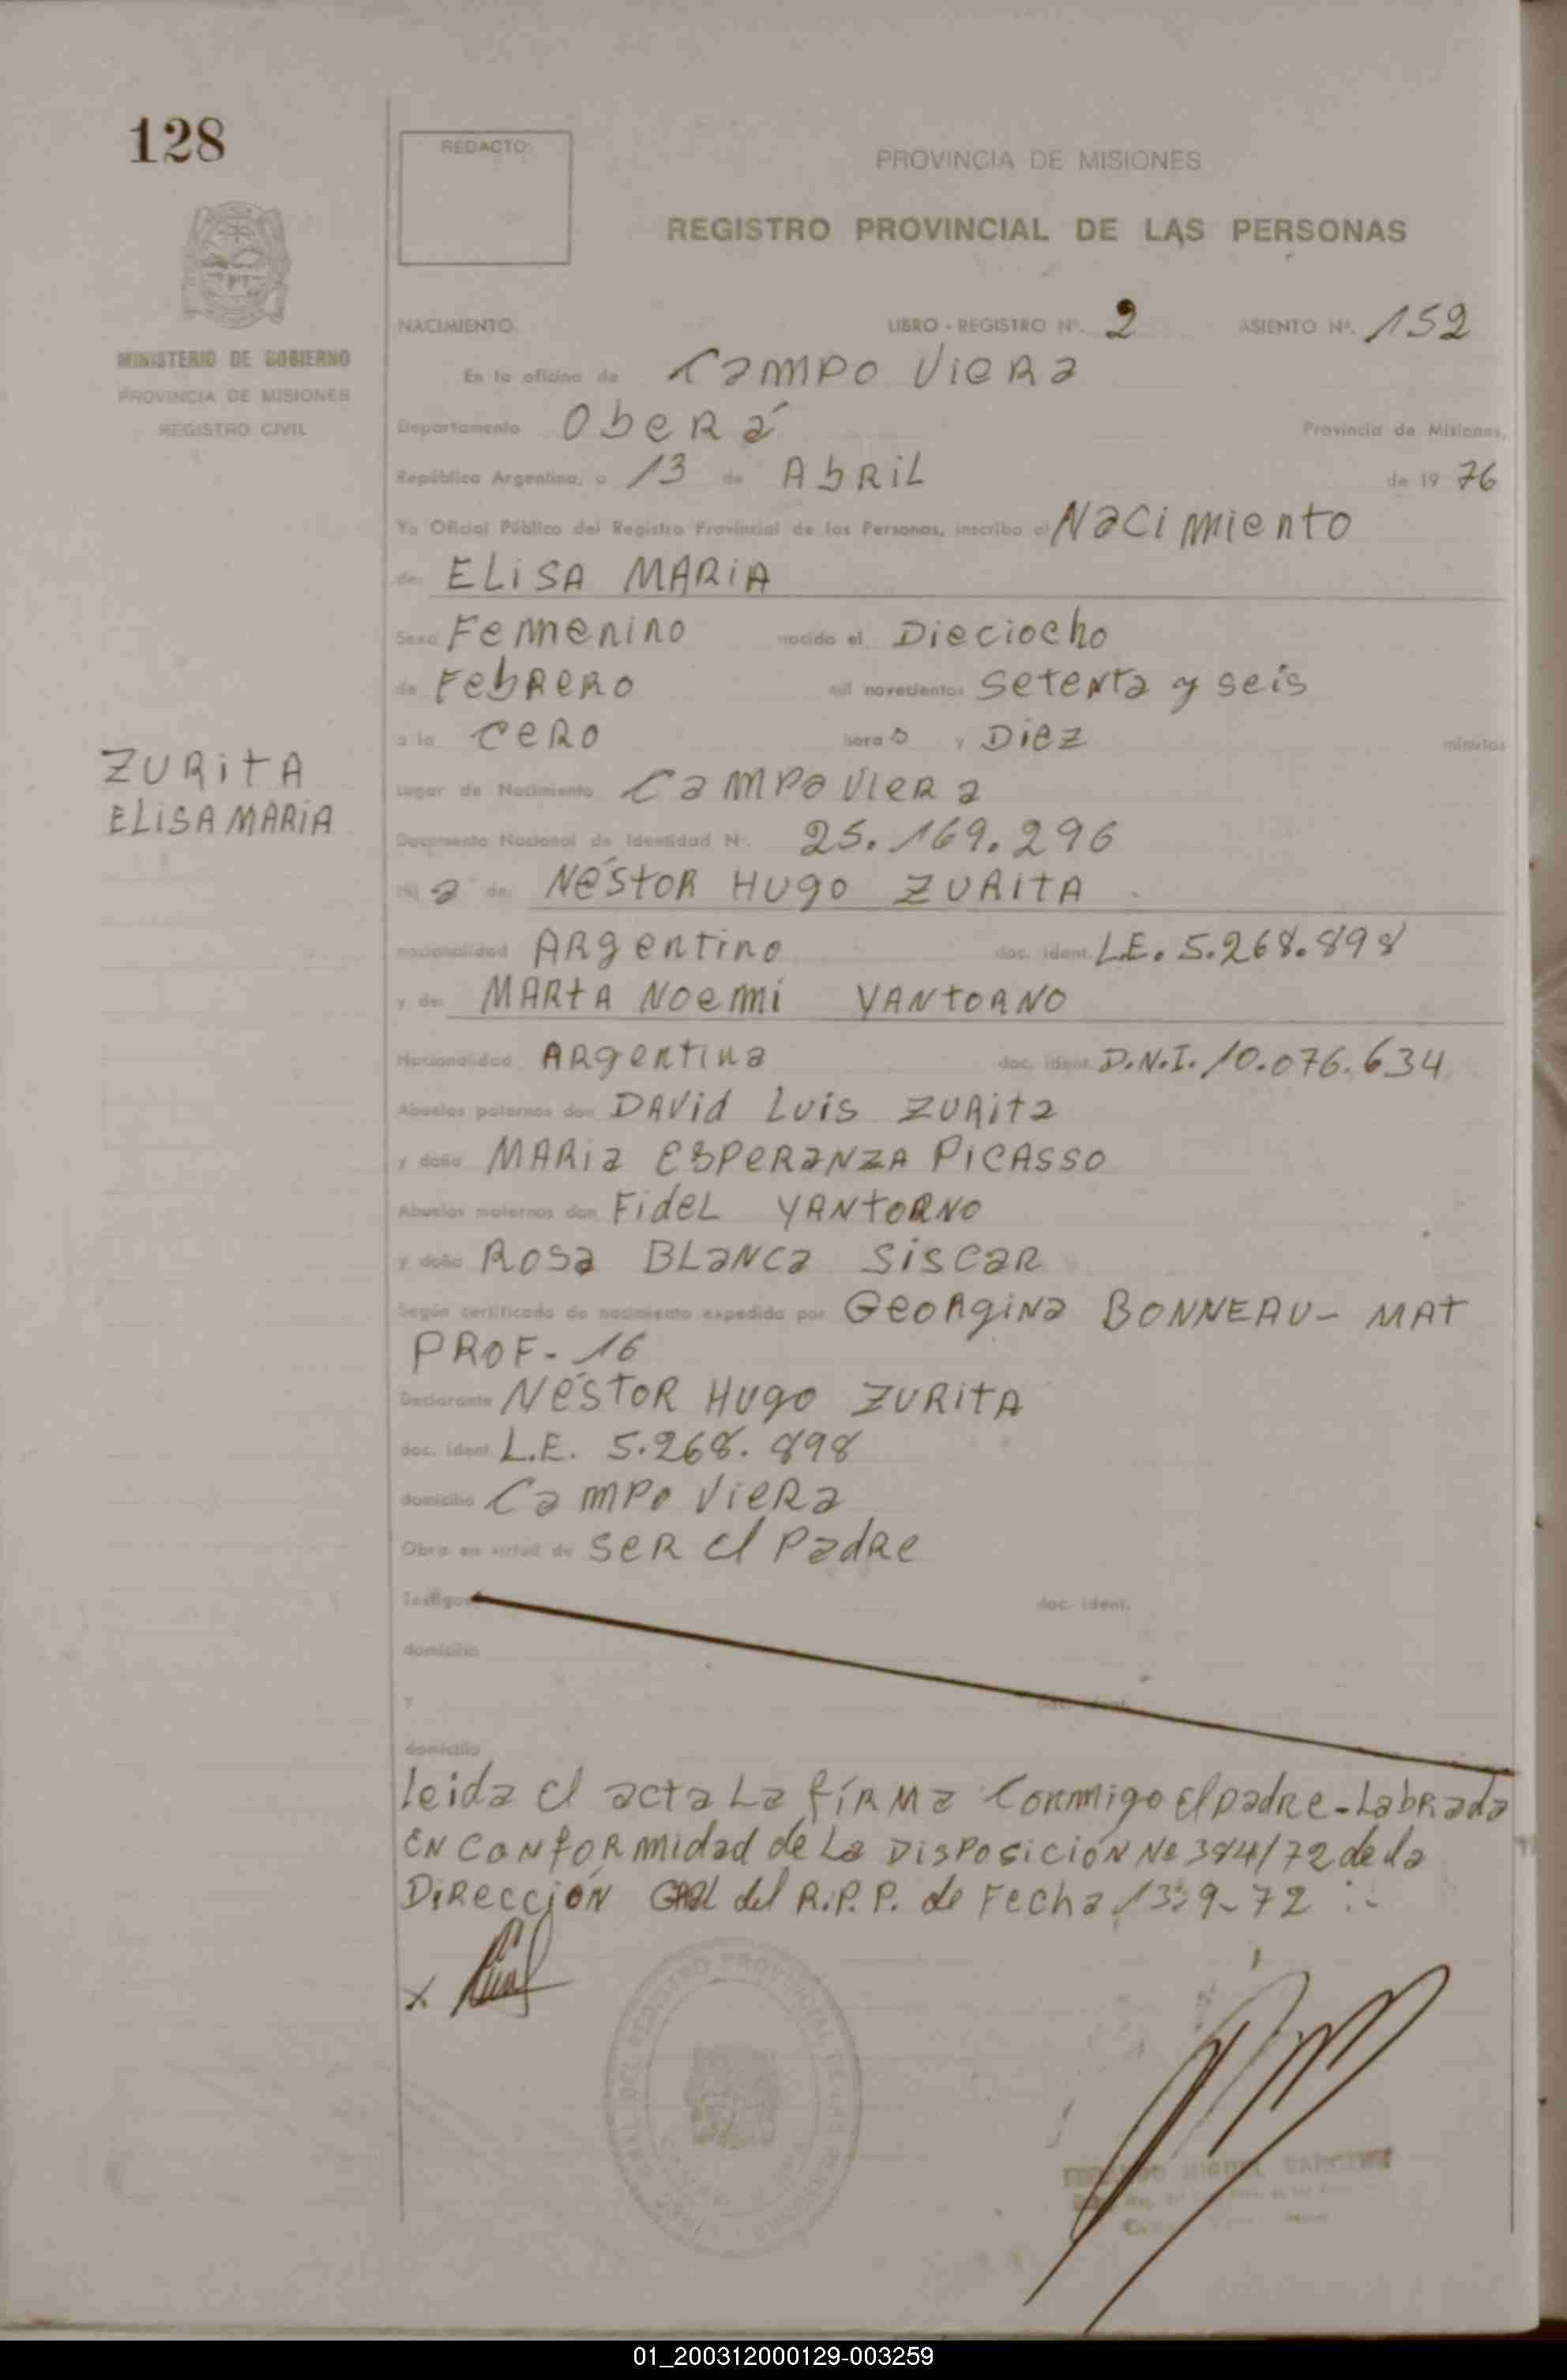 128
REDACTO:
PROVINCIA DE MISIONES
REGISTRO PROVINCIAL DE LAS PERSONAS
MINISTERIO DE GOBIERNO
PROVINCIA DE MISIONES
REGISTRO CIVIL
NACIMIENTO LIBRO - REGISTRO Nº. 2 ASIENTO Nº. 152
En la oficina de Campo Viera
Departamento Oberá Provincia de Misiones,
República Argentina, a 13 de Abril de 19 76
Yo Oficial Público del Registro Provincial de las Personas, inscribo el Nacimiento
de: ELISA MARIA
Sexo Femenino nacido el Dieciocho
de Febrero mil novecientos setenta y seis
a la cero horas y Diez minutos
ZURITA
ELISA MARIA
Lugar de Nacimiento Campo Viera
Documento Nacional de Identidad Nº. 25.169.296
Hija de: Néstor Hugo ZURITA
nacionalidad Argentino doc. ident. L.E. 5.268.898
y de: MARTA Noemi YANTORNO
Nacionalidad Argentina doc. ident. D.N.I. 10.076.634
Abuelos paternos don DAVid Luis ZURita
y doña MARia ESPERANZA PICASSO
Abuelos maternos don FideL YANTORNO
y doña Rosa BLANCa SiSCaR
Según certificado de nacimiento expedido por Georgina BONNEAU - MAT
PROF - 16
Declarante NéSTOR Hugo ZURITA
doc. ident. L.E. 5.268.898
domicilio Campo Viera
Obra en virtud de ser el Padre
Testigos doc. ident.
domicilio
y doc. ident.
domicilio
Leida el acta La firma Conmigo el padre - Labrada
en conformidad de La Disposición Nº 384/72 de la
Dirección GRAL del R.P.P. de Fecha 13-9-72 :-
x
01_200312000129-003259